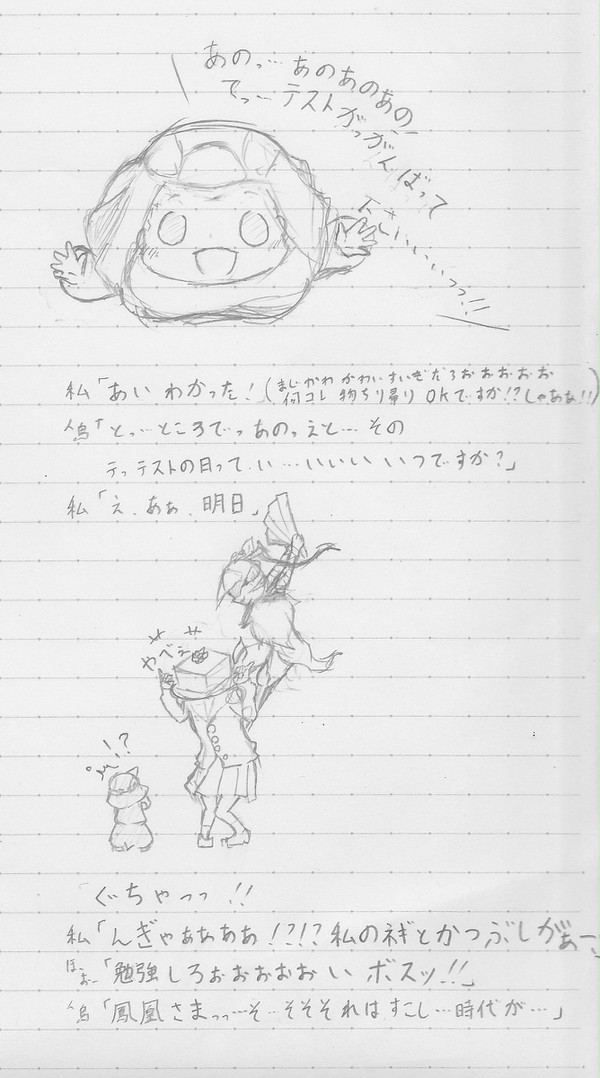 あのっ…あのあのあの、
てっ…テストがっがんばって
下さいぃぃぃっっ!!
私「あいわかった!(まじかわかわいすぎだろおおおおお
何コレ 物ちり帚り OKですか!?しゃああ!!)
「とっ…ところでっあのっえと…その
テッテストの日って、い…いいいいつですか?」
私「え、あぁ、明日」
やべぇ
!?
ぐちゃっっ!!
私「んぎゃああああ!?!?私のネギとかつぶしがぁー
ほーおー「勉強しろおおおおおいボスッ!!」
「鳳凰さまっっ…そ…そそそれはすこし…時代が…」